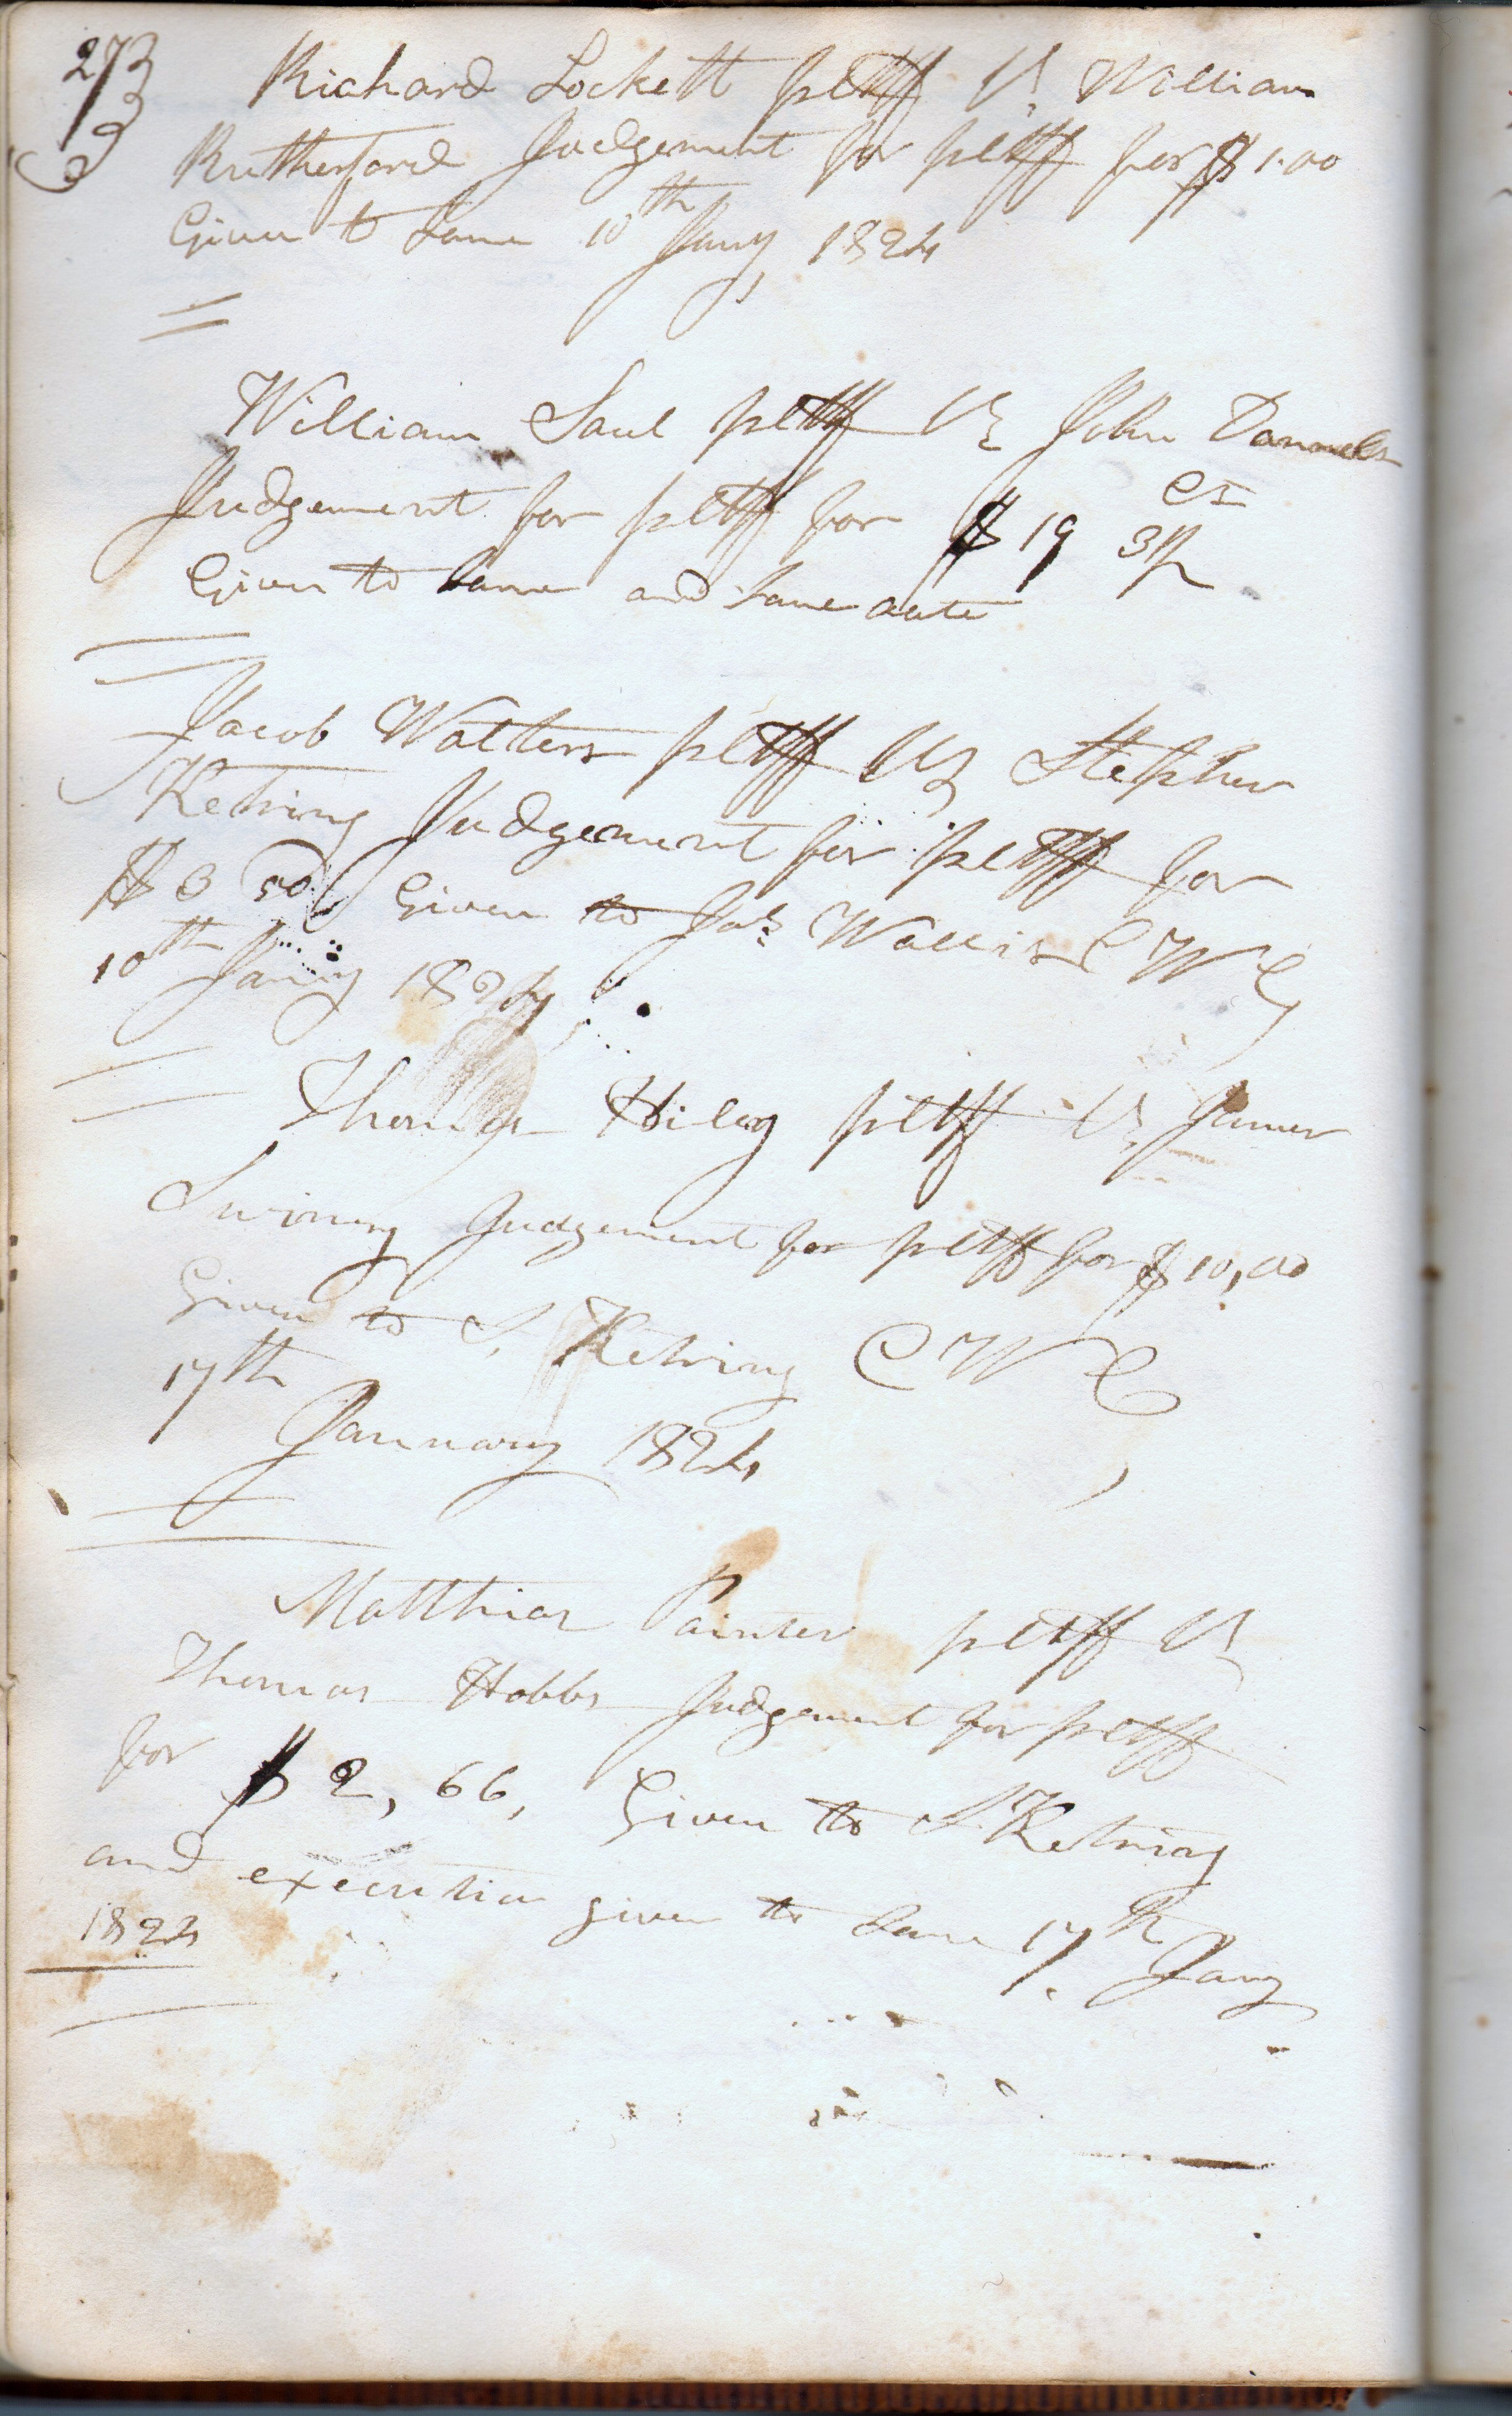 273
Richard Lockett pltff Vs William
Rutherford Judgement for pltff for $1.00
Given to Same 10th Jany 1824
William Saul pltff Vs John
Judgement for pltff for $19 cts
Given to Same and Same date
Jacob Watters pltff Vs Stephen
Ketring Judgement for pltff for
$3 50 Given to Jas Wallis C W C
10th Jany 1824
Thomas Hiley pltff Vs James
Swiney Judgement for pltff for $10,00
Given to S. Ketring C W C
17th
January 1824
Matthias Painter pltff Vs
Thomas Hobbs Judgement for pltff
for $2,66, Given to S Ketring
and execution given to Same 17th Jany
1824